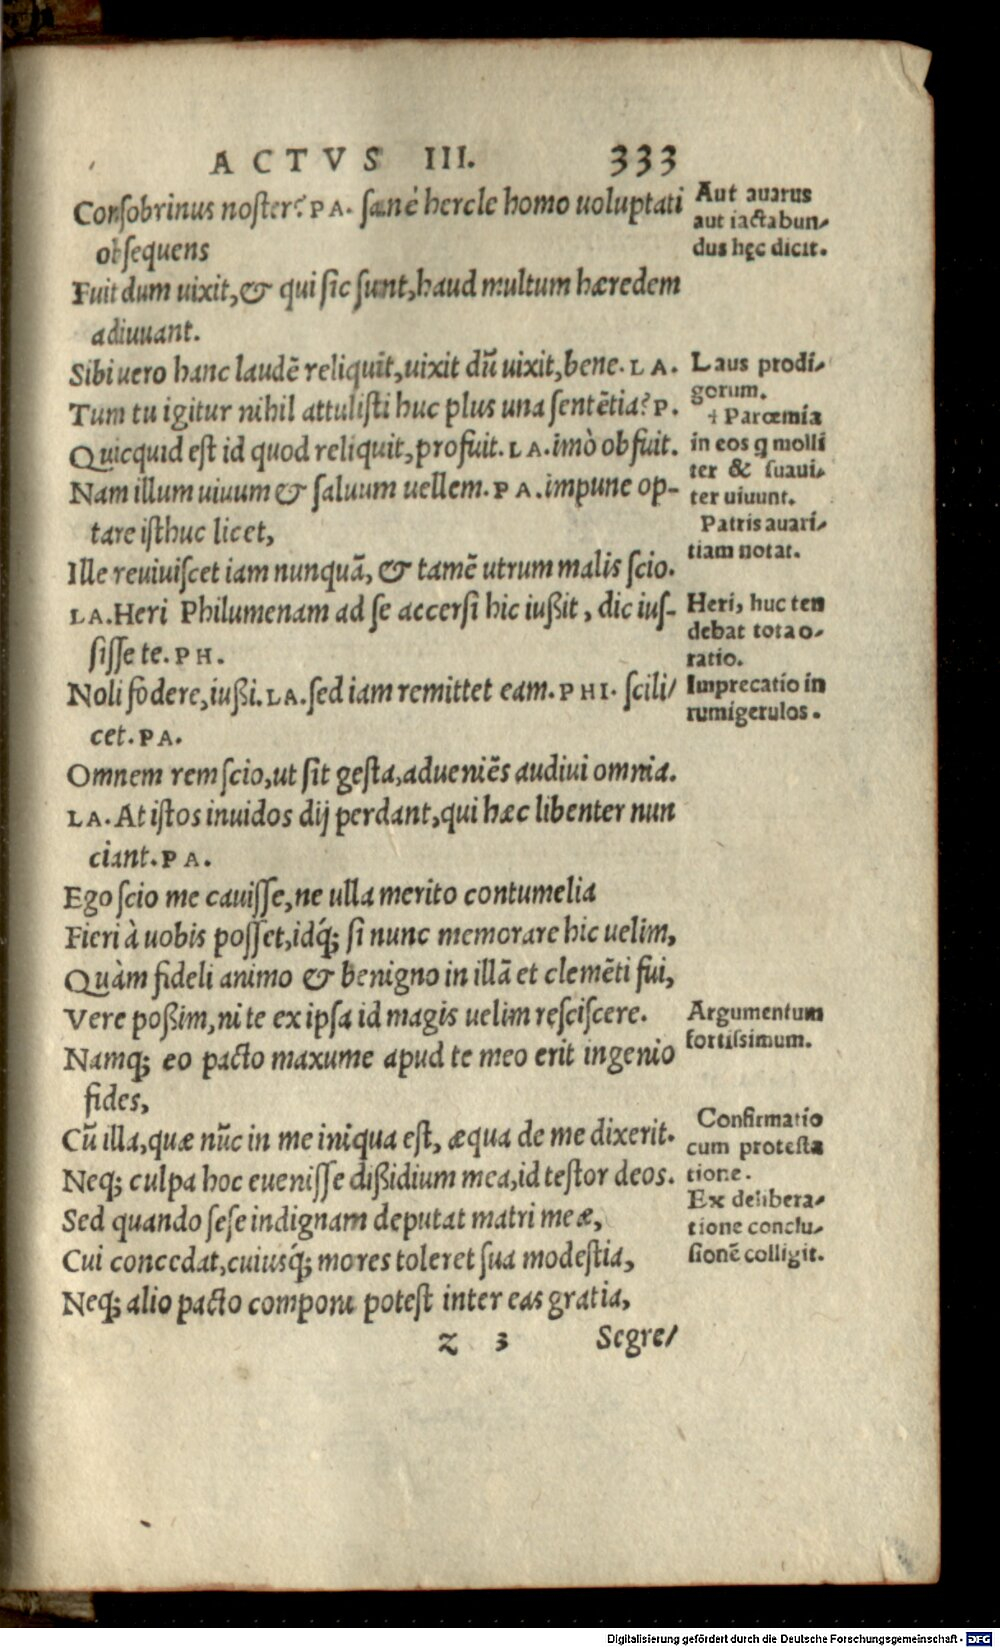 ACTVS III. 333
Conſobrinus noſter? PA. ſanè hercle homo uoluptati
obſequens
Fuit dum uixit, & qui ſic ſunt, haud multum hæredem
adiuuant.
Sibi uero hanc laudē reliquit, uixit dū uixit, bene. LA.
Tum tu igitur nihil attuliſti huc plus una ſentētia? P.
Quicquid eſt id quod reliquit, profuit. LA. imò obfuit.
Nam illum uiuum & ſaluum uellem. PA. impune op-
tare iſthuc licet,
Ille reuiuiſcet iam nunquā, & tamē utrum malis ſcio.
LA. Heri Philumenam ad ſe accerſi hic iußit, dic iuſ-
ſiſſe te. PH.
Noli fodere, iußi. LA. ſed iam remittet eam. PHI. ſcili/
cet. PA.
Omnem rem ſcio, ut ſit geſta, adueniēs audiui omnia.
LA. At iſtos inuidos dij perdant, qui hæc libenter nun
ciant. PA.
Ego ſcio me cauiſſe, ne ulla merito contumelia
Fieri à uobis poſſet, idq́; ſi nunc memorare hic uelim,
Quàm fideli animo & benigno in illā et clemēti fui,
Vere poßim, ni te ex ipſa id magis uelim reſciſcere.
Namq; eo pacto maxume apud te meo erit ingenio
fides,
Cū illa, quæ nūc in me iniqua eſt, æqua de me dixerit.
Neq; culpa hoc eueniſſe dißidium mea, id teſtor deos.
Sed quando ſeſe indignam deputat matri meæ,
Cui concedat, cuiusq́; mores toleret ſua modeſtia,
Neq; alio pacto componi poteſt inter eas gratia,
z 3 Segre/
Aut auarus
aut iactabun-
dus hęc dicit.
Laus prodi-
gorum.
Parœmia
in eos q molli
ter & ſuaui-
ter uiuunt.
Patris auari-
tiam notat.
Heri, huc ten
debat tota o-
ratio.
Imprecatio in
rumigerulos.
Argumentum
fortiſsimum.
Confirmatio
cum proteſta
tione.
Ex delibera-
tione conclu-
ſionē colligit.
Digitalisierung gefördert durch die Deutsche Forschungsgemeinschaft - DFG